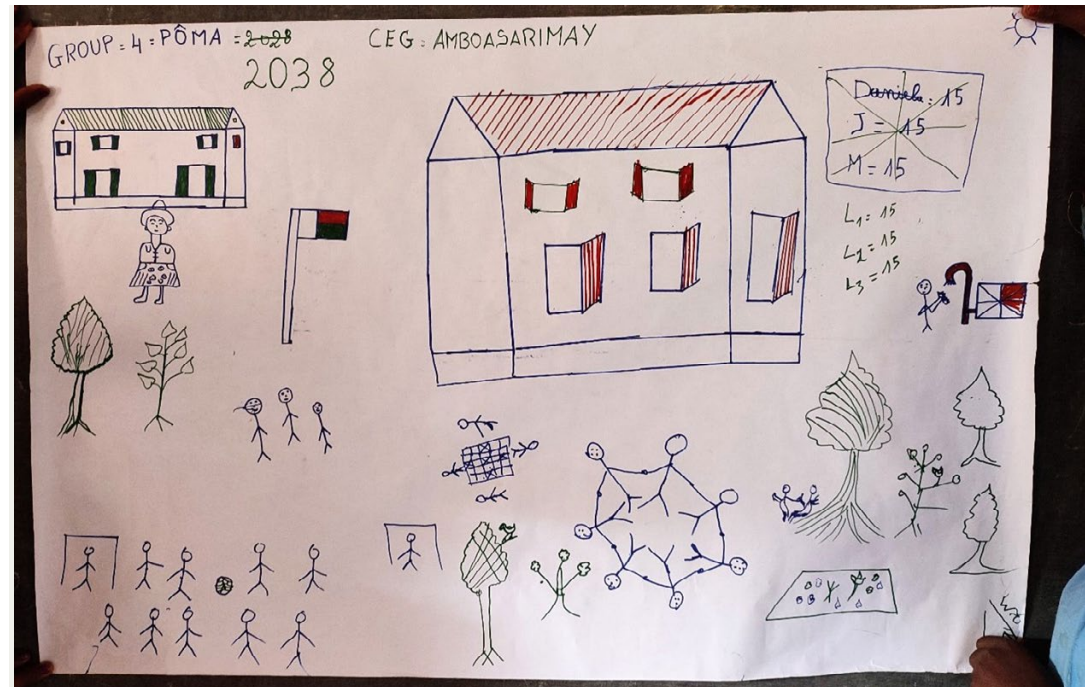 GROUP = 4 = PÔMA = 2028
CEG = AMBOASARIMAY
2038
Daniela = 15
J = 15
M = 15
L1 = 15
L2 = 15
L3 = 15